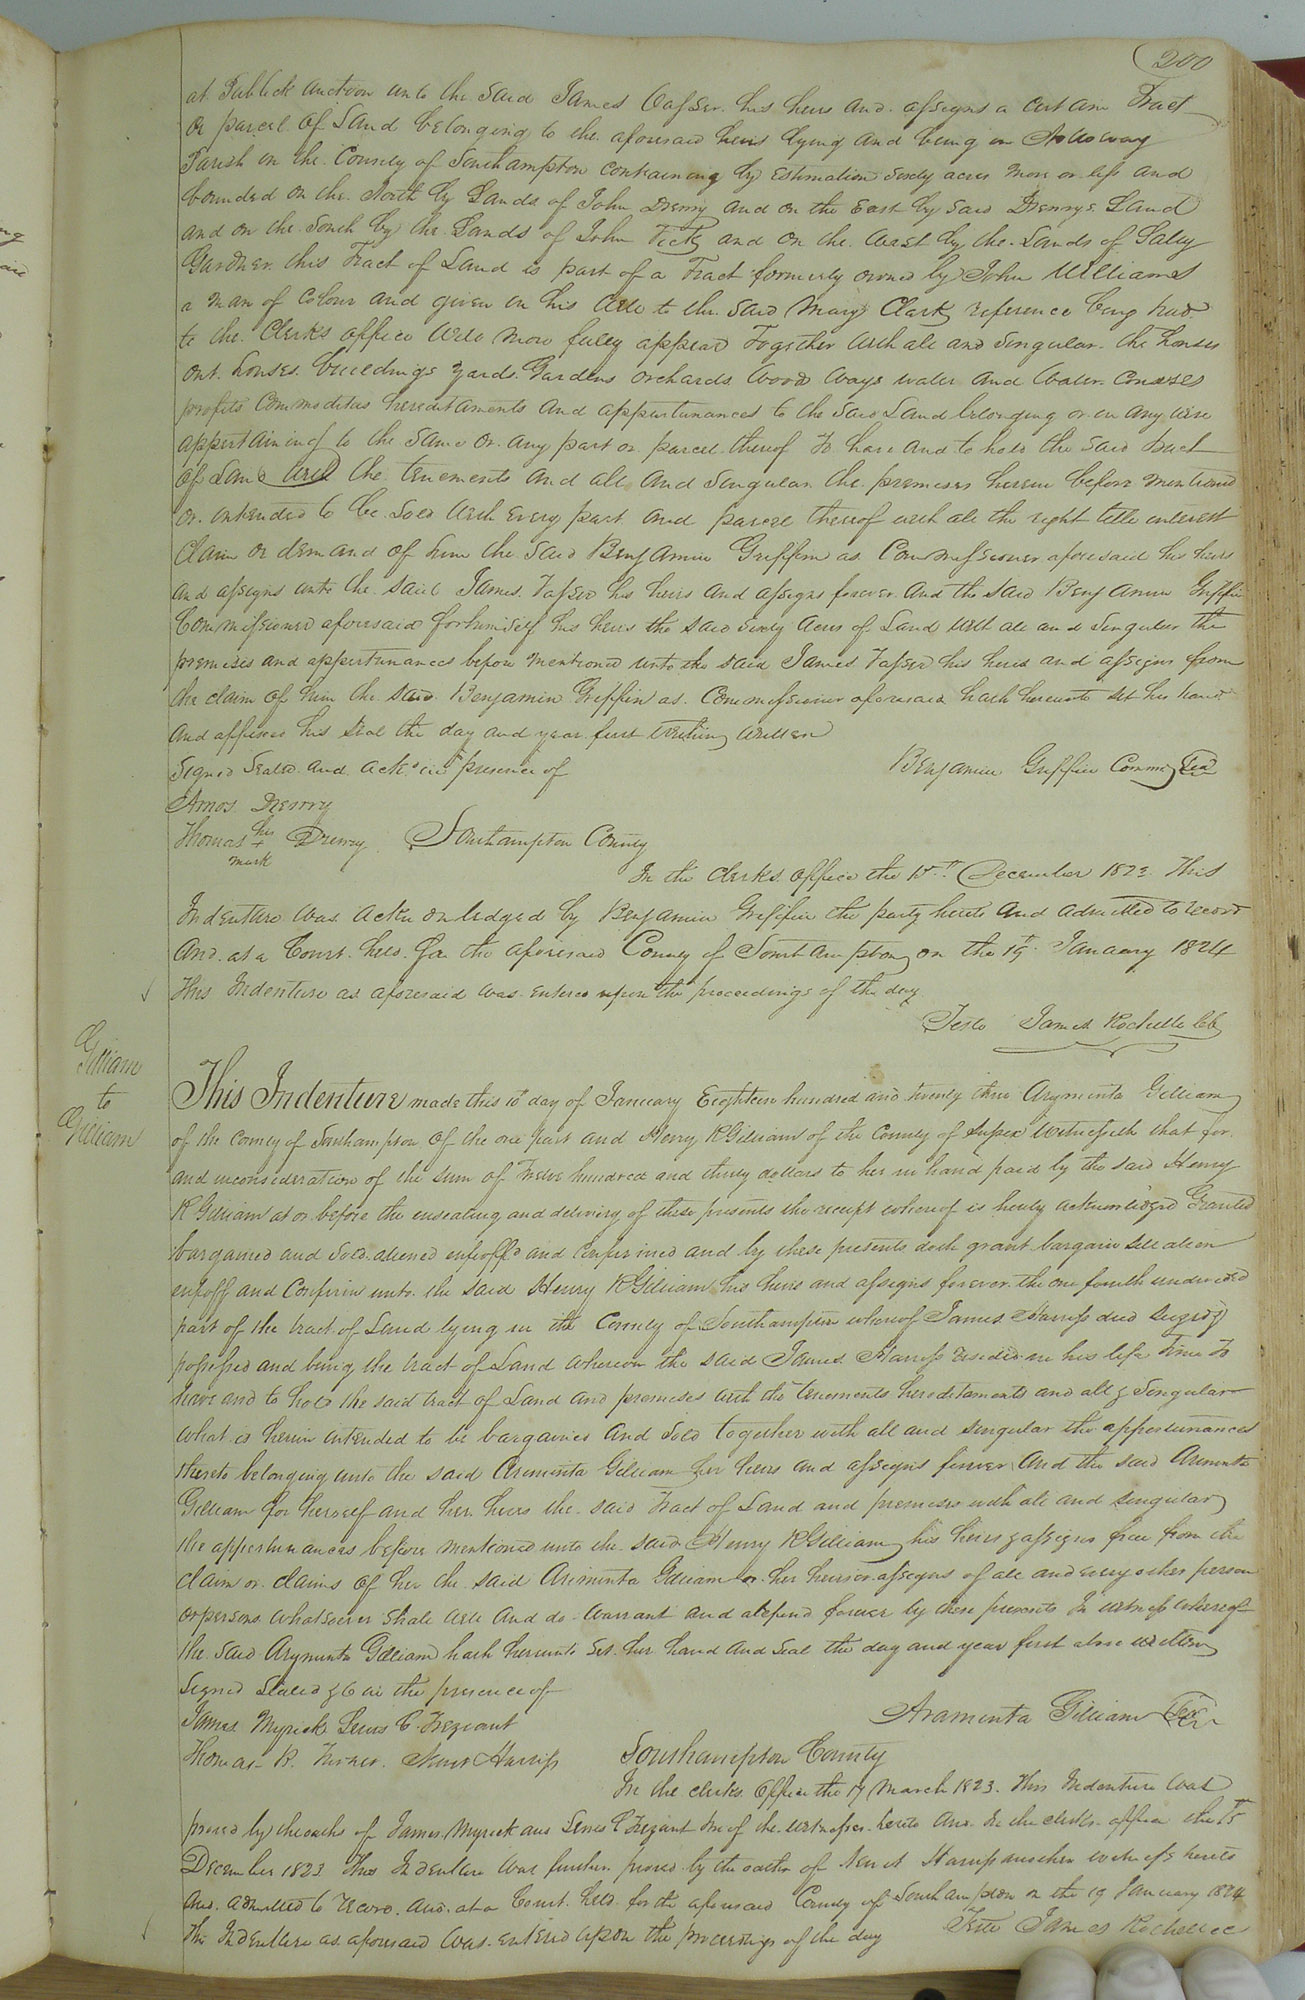 200
at Publick auction unto the said James Vasser his heirs and assigns a certain Tract
or parcel of Land belonging to the aforesaid heirs lying and being in Nottoway
Parish in the County of Southampton containing by Estimation sixty acres more or less and
bounded on the North by Lands of John Drewry and on the East by said Drewrys Land
and on the South by the Lands of John and on the West by the Lands of Salley
Gardner this Tract of Land is part of a Tract formerly owned by John Williams
a man of Colour and given in his Will to the said Mary Clark reference being had
to the Clerks office will more fully appear Together with all and singular the houses
out houses buildings yards Gardens orchards wood ways water and water courses
profits Commodities hereditaments and appurtunances to the said Land belonging or in any wise
appertaining to the same or any part or parcel thereof To have and to hold the said tract
of Land with the tenements and all and singular the premises herein before mentioned
or intended to be sold with every part and parcel thereof with all the right title interest
claim or demand of him the said Benjamin Griffin as Commissioner aforesaid his heirs
and assigns unto the said James Vasser his heirs and assigns forever And the said Benjamin Griffin
Commissioner aforesaid for himself his heirs the said sixty Acres of Land with all and singular the
premises and appertunances before mentioned unto the said James Vasser his heirs and assigns from
the claim of him the said Benjamin Griffin as Commissioner aforesaid hath hereunto set his hand
and affixed his seal the day and year first within written
Signed Sealed and Ackd in presence of Benjamin Griffin Commr Seal
Amos Drewry
Thomas his + mark Drewry Southampton County
In the clerks office the December 1823 This
Indenture was acknowledged by Benjamin Griffin the party hereto and admitted to record
And at a Court held for the aforesaid County of Southampton on the 19 January 1824
This Indenture as aforesaid was entered upon the proceedings of the day
Teste James Rochelle Clk
Gilliam
to
Gilliam
This Indenture made this 10th day of January Eighteen hundred and twenty three Arymenta Gilliam
of the County of Southampton of the one part and Henry R Gilliam of the County of Sussex Witnesseth that for
and in consideration of the sum of Twelve hundred and thirty dollars to her in hand paid by the said Henry
R Gilliam at or before the ensealing and delivery of these presents the receipt whereof is hereby acknowledged Granted
bargained and sold aliened enfeoffd and confirmed and by these presents doth grant bargain sell alien
enfeoff and confirm unto the said Henry R Gilliam his heirs and assigns forever the one fourth undivided
part of the tract of Land lying in the County of Southampton whereof James Harriss died seized &
possessed and being the tract of Land whereon the said James Harriss resided in his life time To
have and to hold the said tract of Land and premises with the tenements heredetaments and all & Singular
what is herein intended to be bargained and sold together with all and singular the appertunances
thereto belonging unto the said Arimenta Gilliam her heirs and assigns forever And the said Arimenta
Gilliam for herself and her heirs the said Tract of Land and premises with all and singular
the appertunances before mentioned unto the said Henry R Gilliam his heirs & assigns free from the
claim or claims of her the said Ariminta Gilliam or her heirs or assigns of all and every other person
or persons whatsoever shall will and do warrant and defend forever by these presents In witness whereof
the said Arymenta Gilliam hath hereunto set her hand and seal the day and year first above written
Signed Sealed &C in the presence of
James Myrick Lewis C Trezvant Araminta Gilliam Seal
Thomas R. Turner Newit Harriss Southampton County
In the clerks office the 17 March 1823. This Indenture was
proved by the oaths of James Myrick and Lewis C Trezvant two of the witnesses hereto And In the clerks office the
December 1823 This Indenture was further proved by the oath of Newit Harriss another witness hereto
and admitted to record. And at a Court held for the aforesaid County of Southampton on the 19 January 1824
This Indenture as aforesaid was entered upon the proceedings of the day Teste James Rochelle cc